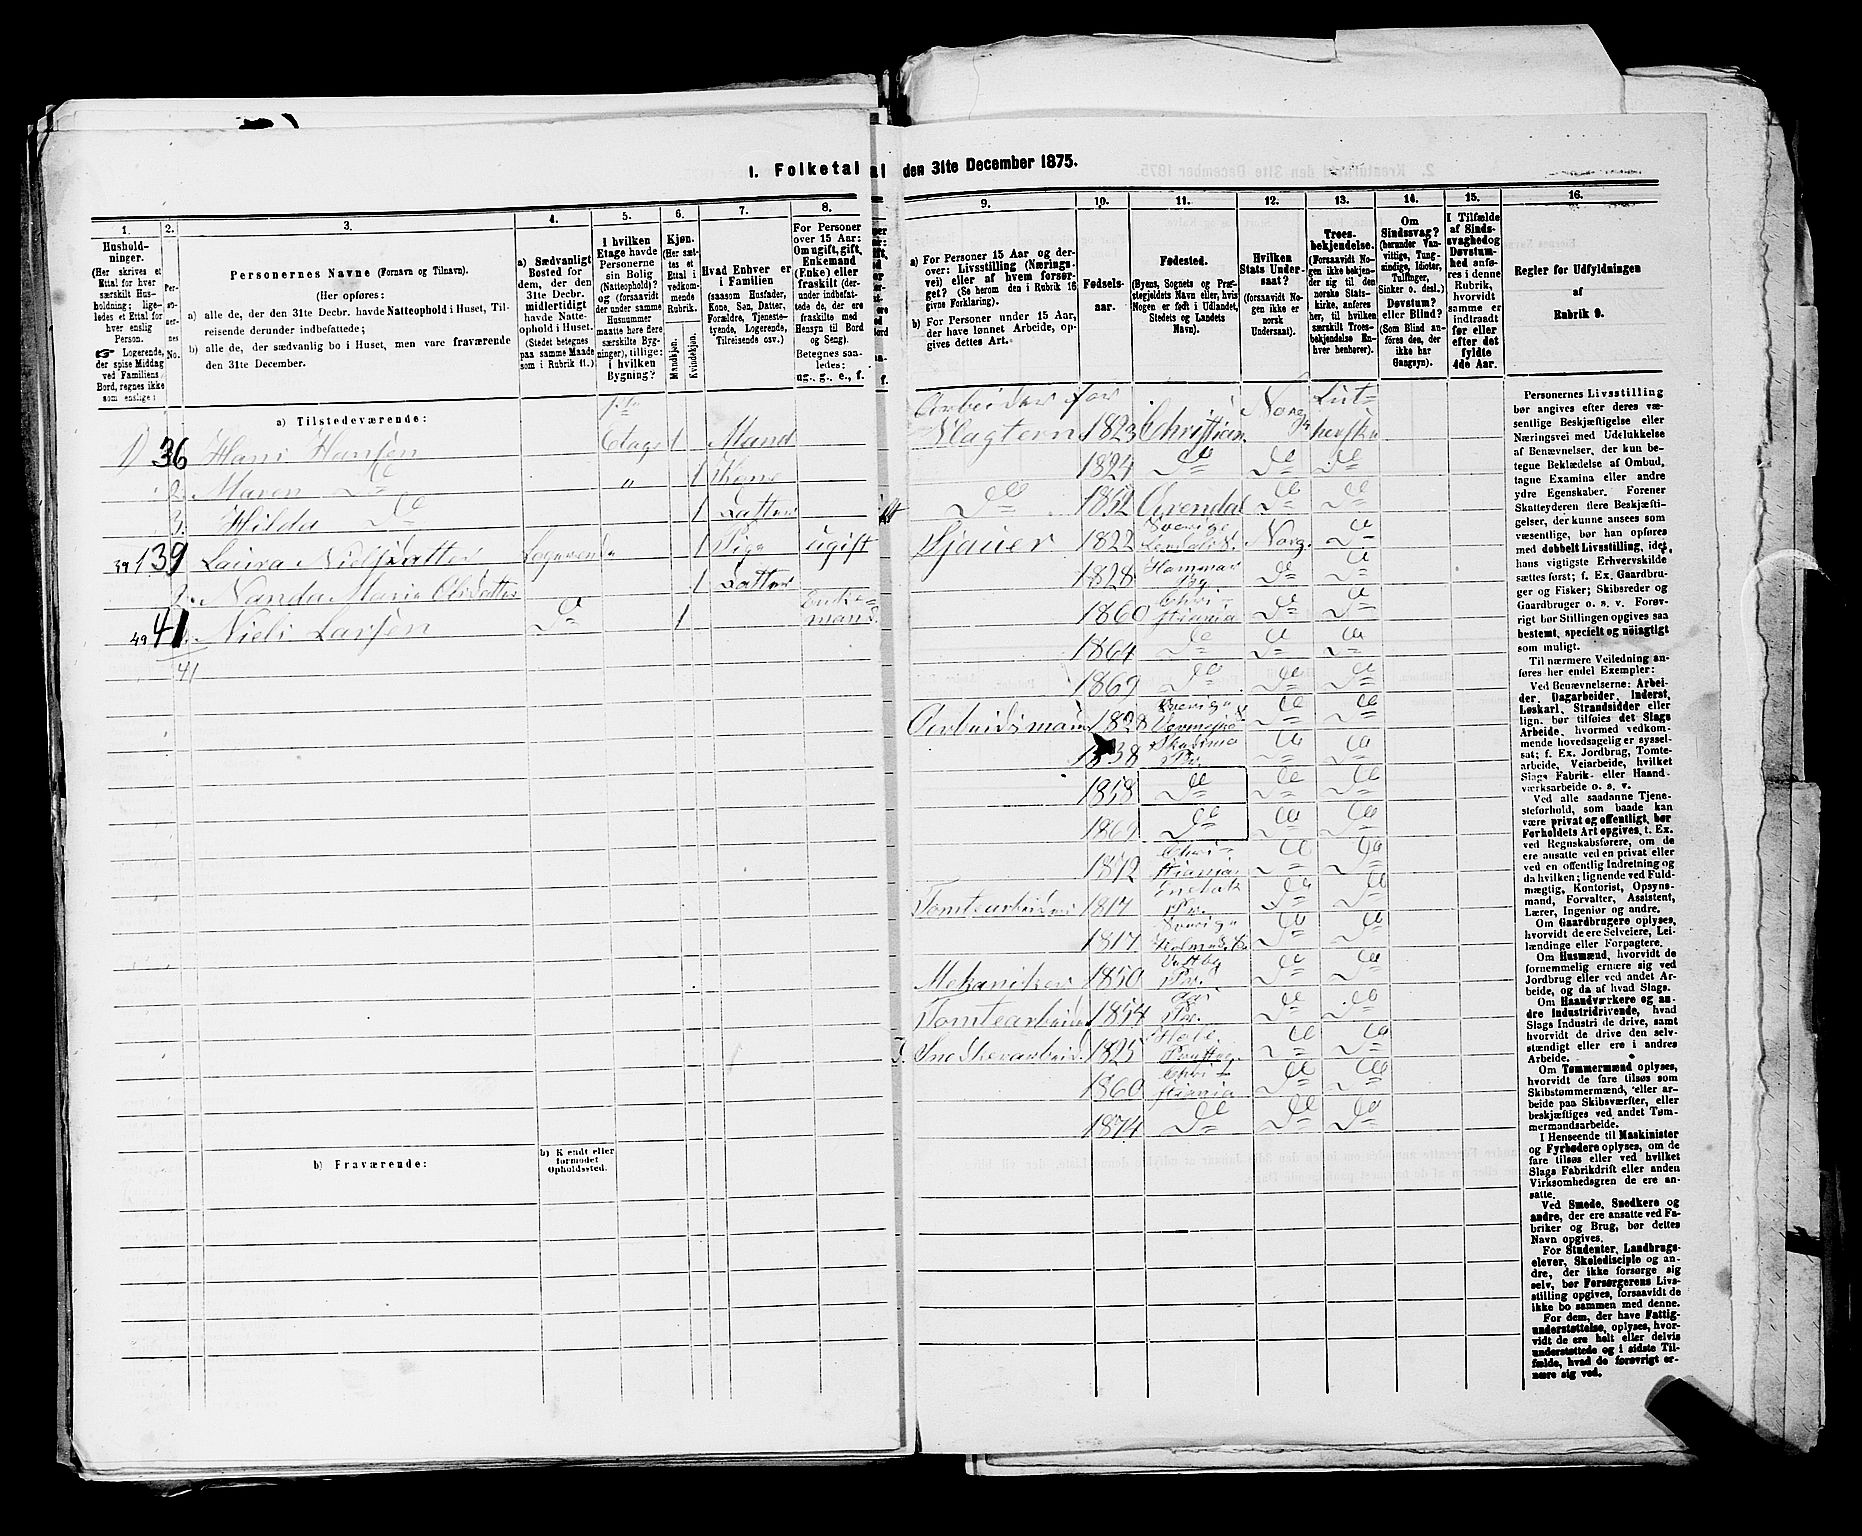 1. Folketal
al
den 31te December 1875.
1.
2.
3.
4.
5.
6.
7.
8.
Hushold-
ninger.
(Her skrives
et Ettal for
hver
særskilt Hus-
holdning; lige-
ledes et Ettal for
hver enslig
Person.
☞ Logerende,
der spise Middag
ved Familiens
Bord, regnes ikke
som enslige)
Per-
so-
ner-
nes
No.
Personernes Navne (Fornavn og Tilnavn).
(Her opføres:
a) alle de, der den 31te Decbr. havde Natteophold i Huset, Til-
reisende derunder indbefattede;
b) alle de, der sædvanlig bo i Huset, men vare fraværende
den 31te December.
a) Sædvanligt
Bosted for
dem, der den
31te Decbr.
midlertidigt
havde Natte-
ophold i Huset.
(Stedet betegnes
paa samme Maade
som i Rubrik 11.)
I hvilken
Etage havde
Personerne
sin Bolig
(Natteophold)?
og (forsaavidt
der under samme
Husnummer
maatte høre flere
særskilte Byg-
ninger), tillige:
i hvilken
Bygning?
Kjøn.
(Her sæt-
tes et
Ettal i
vedkom-
mende
Rubrik.
Mandkjøn.
Kvindekjøn.
Hvad Enhver er
i Familien
(saasom Husfader,
Kone, Søn, Datter,
Forældre, Tjeneste-
tyende, Logerende,
Tilreisende osv.)
For Personer
over 15 Aar:
Om ugift, gift,
Enkemand
(Enke) eller
fraskilt (der-
under indbefat-
tede de, der ere
fraskilte med
Hensyn til Bord
og Seng).
Betegnes saa-
ledes:
ug., g., e., f.
a) Tilstedeværende:
1) 36 Hans Hansen Etage 1 Mand
2. Maren Do " 1 Kone
3. Hilda Do 1 Datter
39 1 39 Laura Nielsdatter Logerende 1 Pige ugift
2. Nanda Maria Olsdatter 1 Datter
49 41 Niels Larsen Do 1 Enke=
mand
41
b) Fraværende:
b) Kjendt eller
formodet
Opholdssted.
9.
10.
11.
12.
13.
14.
15.
16.
a) For Personer 15 Aar og der-
over: Livsstilling (Nærings-
vei) eller af hvem forsør-
get? (Se herom den i Rubrik 16
givne Forklaring).
b) For Personer under 15 Aar,
der have lønnet Arbeide, op-
gives dettes Art.
Fødsels-
aar.
Fødested.
(Byens, Sognets og Præ-
stegjeldets Navn eller, hvis
Nogen er født i Udlandet,
Stedets og Landets
Navn).
Hvilken
Stats Under-
saat?
(forsaavidt No-
gen ikke er
norsk
Undersaat).
Troes-
bekjendelse.
(Forsaavidt No-
gen ikke bekjen-
der sig til den
norske Stats-
kirke, anføres
her, til hvilken
særskilt Troes-
bekjendelse En-
hver henhører).
Om
Sindssvag?
(herunder Van-
vittige, Tung-
sindige, Idioter,
Tullinger,
Sinker o. desl.)
Døvstum?
eller Blind?
(Som Blind an-
føres den, der
ikke har
Gangsyn).
I Tilfælde
af Sinds-
svaghed og
Døvstum-
hed anfø-
res i denne
Rubrik,
hvorvidt
samme er
indtraadt
før eller
efter det
fyldte
4de Aar.
Regler for Udfyldningen
af
Rubrik 9.
Arbeider for Norg Lut-
Slagtern 1823 Christian herske
1824 Do Do Do
Do 1852 Arendal Do Do
Sverige
Sjauer 1822 Norg. Do
Hammar
1828 Do Do
Chri-
1860 stiania Do Do
1864 Do Do Do
1869 Do Do Do
Sverige
Arbeidsmand 1828 Do Do
1838 Pr. Do Do
1858 Do Do Do
1869 Do Do Do
Chri-
1872 stiania Do Do
Enebak
Tomtearbeider 1817 Pr. Do Do
Sverige
1817 Do Do
Vestby
Mekaniker 1850 Pr. Do Do
Aas
Tomtearbeider 1854 Pr. Do Do
Hole
Snedkerarbeid. 1825 Do Do
Chri-
1860 stiania Do Do
1874 Do Do Do
Personernes Livsstilling
bør angives efter deres væ-
sentlige Beskjæftigelse eller
Næringsvei med Udelukkelse
af Benævnelser, der kun be-
tegne Beklædelse af Ombud,
tagne Examina eller andre
ydre Egenskaber. Forener
Skatteyderen flere Beskjæfti-
gelser, der kunne ansees som
væsentlige, bør han opføres
med dobbelt Livsstilling, idet
hans vigtigste Erhvervskilde
sættes først; f. Ex. Gaardbru-
ger og Fisker; Skibsreder og
Gaardbruger o. s. v. Forøv-
rigt bør Stillingen opgives saa
bestemt, specielt og nøiagtigt
som muligt.
Til nærmere Veiledning an-
føres her endel Exempler:
Ved Benævnelserne: Arbei-
der, Dagarbeider, Inderst,
Løskarl, Strandsidder eller
lign. bør tilføies det Slags
Arbeide, hvormed vedkom-
mende hovedsagelig er syssel-
sat; f. Ex. Jordbrug, Tomte-
arbeide, Veiarbeide, hvilket
Slags Fabrik- eller Haand-
værksarbeide o. s. v.
Ved alle saadanne Tjene-
steforhold, som baade kan
være privat og offentligt, bør
Forholdets Art opgives, t. Ex.
ved Regnskabsførere, om de
ere ansatte ved en privat eller
ved en offentlig Indretning og
da hvilken; lignende ved Fuld-
mægtig, Kontorist, Opsyns-
mand, Forvalter, Assistent,
Lærer, Ingeniør og andre.
Om Gaardbrugere oplyses,
hvorvidt de ere Selveiere, Lei-
lændinge eller Forpagtere.
Om Husmænd, hvorvidt de
fornemmelig ernære sig ved
Jordbrug eller ved andet Ar-
beide, og da af hvad Slags.
Om Haandværkere og an-
dre Industridrivende, hvad
Slags Industri de drive, samt
hvorvidt de drive den selv-
stændigt eller ere i andres
Arbeide.
Om Tømmermænd oplyses,
hvorvidt de fare tilsøs som
Skibstømmermænd, eller ar-
beide paa Skibsværfter, eller
beskjæftiges ved andet Tøm-
mermandsarbeide.
I Henseende til Maskinister
og Fyrbødere oplyses, om de
fare tilsøs eller ved hvilket
Slags Fabrikdrift eller anden
Virksomhedsgren de ere an-
satte.
Ved Smede, Snedkere og
andre, der ere ansatte ved Fa-
briker og Brug, bør dettes
Navn opgives.
For Studenter, Landbrugs-
elever, Skoledisciple og an-
dre, der ikke forsørge sig
selv, bør Forsørgerens Livs-
stilling opgives, forsaavidt de
ikke bo sammen med denne.
For dem, der have Fattig-
understøttelse, oplyses, hvor-
vidt de ere helt eller delvis
understøttede og i sidste Til-
fælde, hvad de forøvrigt er-
nære sig ved.